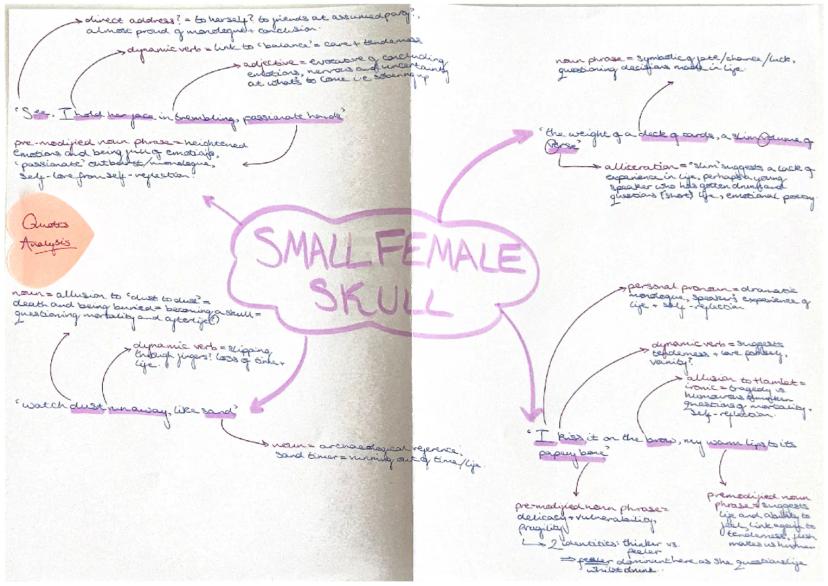 direct address? = to herself? to friends at assumed party?,
almost proud of monologue + conclusion.
dynamic verb = link to 'balance' = care + tenderness
adjective = evocative of concluding
emotions, nervous and uncertainty
at what's to come i.e. sobering up
"See. I hold her face in trembling, passionate hands"
pre-modified noun phrase = heightened
emotions and being full of emotions,
'passionate' outbursts/monologue,
self-love from self-reflection?
noun phrase = symbolic of fate/chance/luck,
questioning decisions made in life.
"the weight of a deck of cards, a slim volume of
verse"
alliteration = "slim" suggests a lack of
experience in life, perhaps a young
speaker who has gotten drunk and
questions (short) life, emotional poetry
Quotes
Analysis
SMALL FEMALE
SKULL
noun = allusion to 'dust to dust' =
death and being buried = becoming a skull =
questioning mortality and afterlife(?)
dynamic verb = slipping
through fingers? loss of time +
life.
"watch dust run away, like sand"
noun = archaeological reference,
sand timer = running out of time/life.
personal pronoun = dramatic
monologue, speaker's experience of
life + self-reflection
dynamic verb = suggests
tenderness + love possibly,
vanity?
allusion to Hamlet =
ironic = tragedy vs
humorous drunken
questions of mortality.
self-reflection.
"I kiss it on the brow, my warm lips to its
papery bone"
pre-modified noun phrase =
delicacy + vulnerability,
fragility
2 identities: thinker vs.
feeler
feeler dominant here as she questions life
whilst drunk.
premodified noun
phrase = suggests
life and ability to
feel, link again to
tenderness, flesh
makes us human